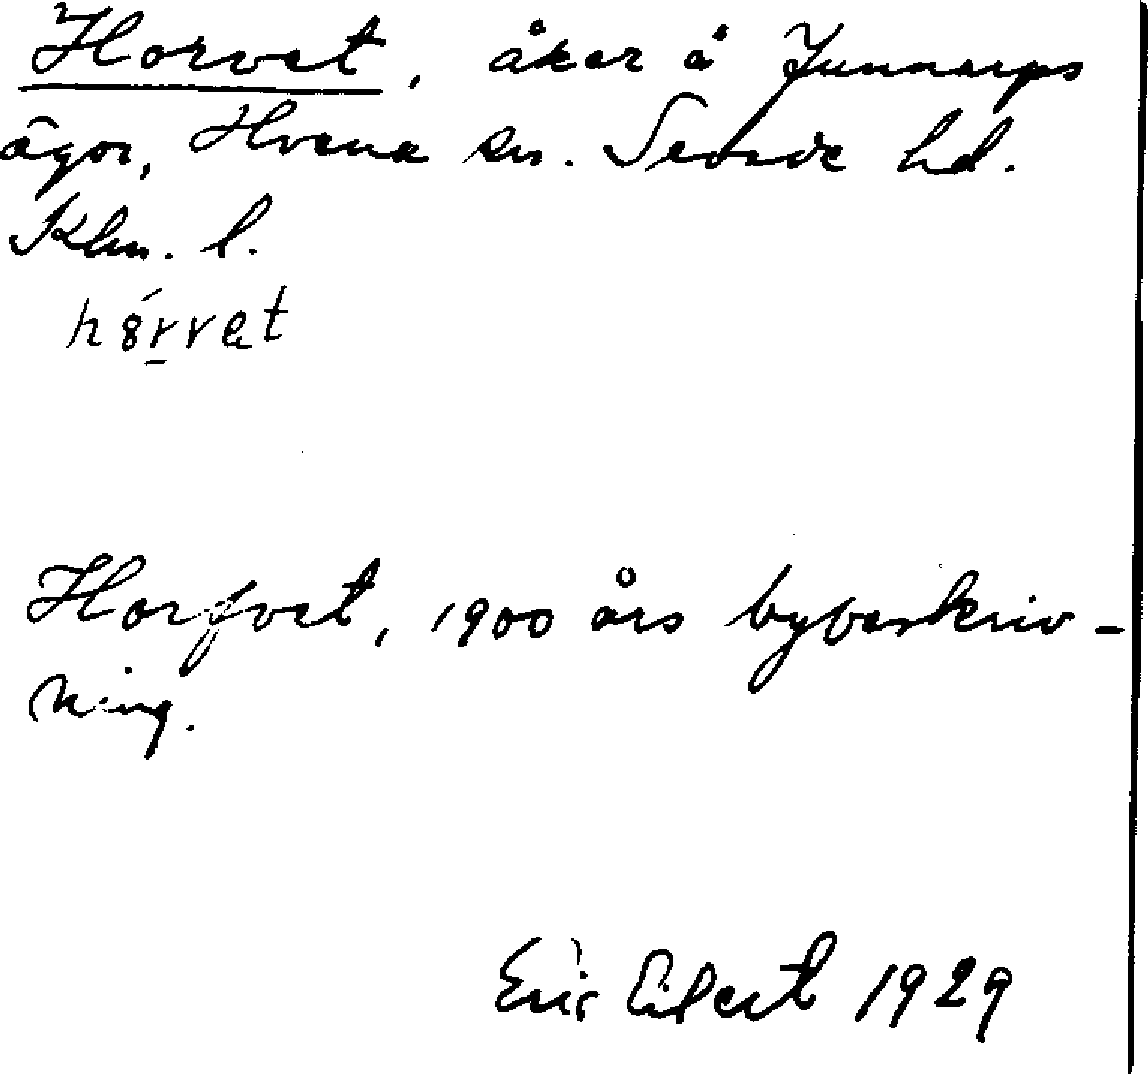 Horvet, åker å Junnarps
ägor, Hvena sn. Sevede hd.
Klm. l.
hörvet
Horfvet, 1900 års bybeskriv-
ning.
Eric Elfert 1929